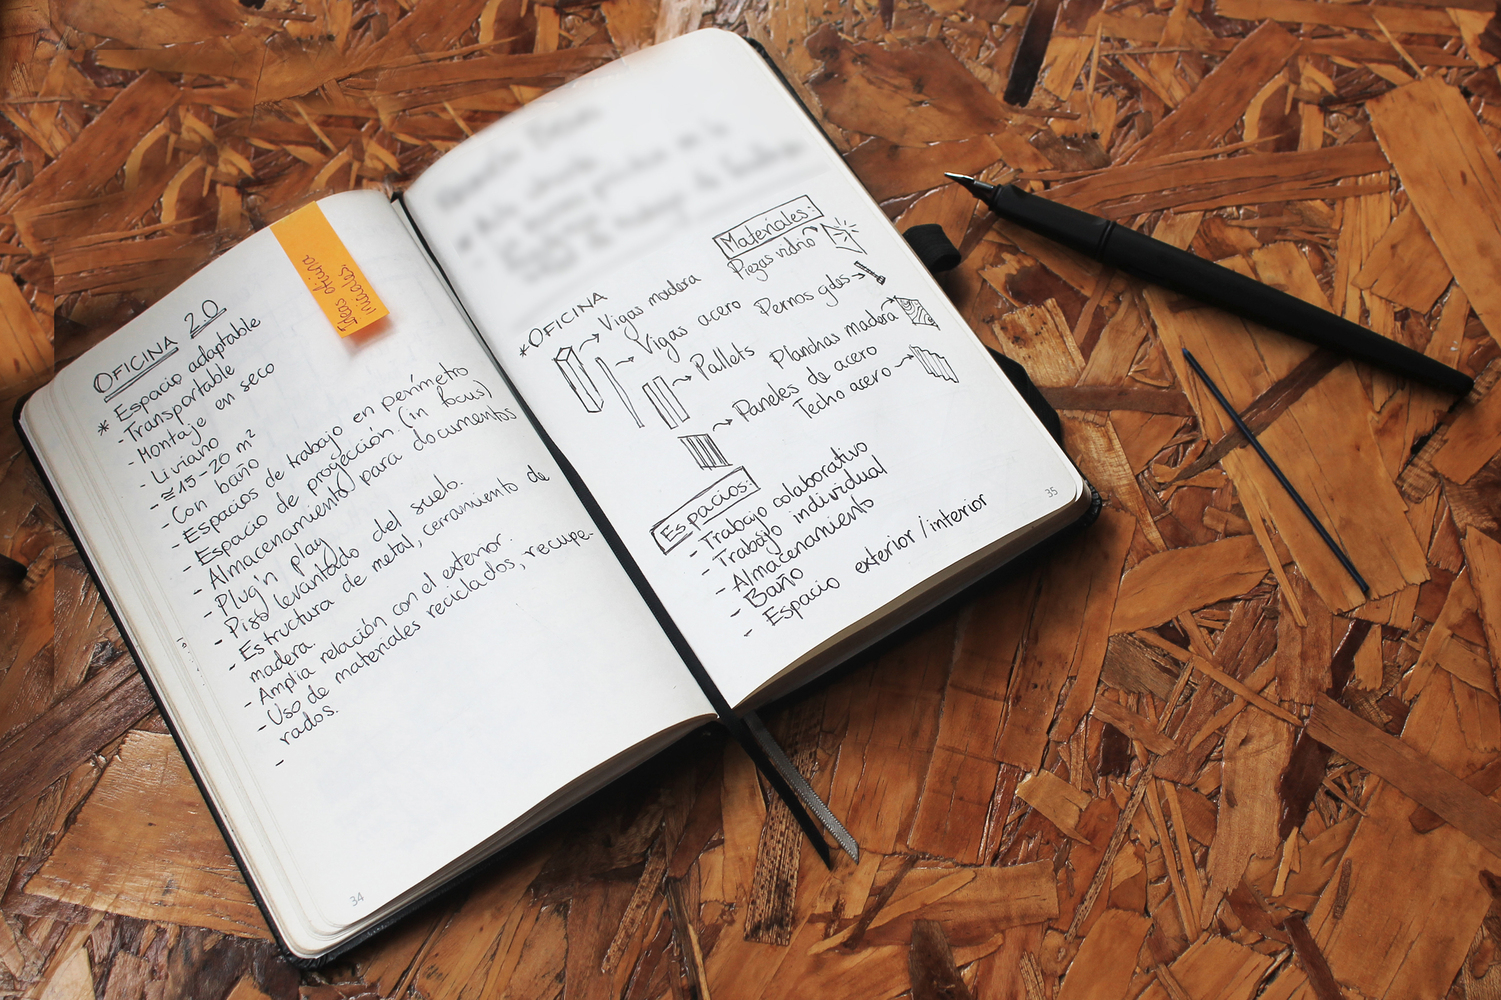 Ideas oficina
iniciales.
OFICINA 2.0
* Espacio adaptable
- Transportable
- Montaje en seco
- Liviano
- ≅15-20 m²
- Con baño
- Espacios de trabajo en perímetro
- Espacio de proyección. (in focus)
- Almacenamiento para documentos
- Plug'n play
- Piso levantado del suelo.
- Estructura de metal, cerramiento de
madera.
- Amplia relación con el exterior.
- Uso de materiales reciclados, recupe-
rados.
-
34
Materiales:
*OFICINA
Vigas madera
Piezas vidrio
Vigas acero
Pernos gdos
Pallets
Planchas madera
Paneles de acero
Techo acero
Espacios:
- Trabajo colaborativo
- Trabajo individual
- Almacenamiento
- Baño
- Espacio exterior/interior
35